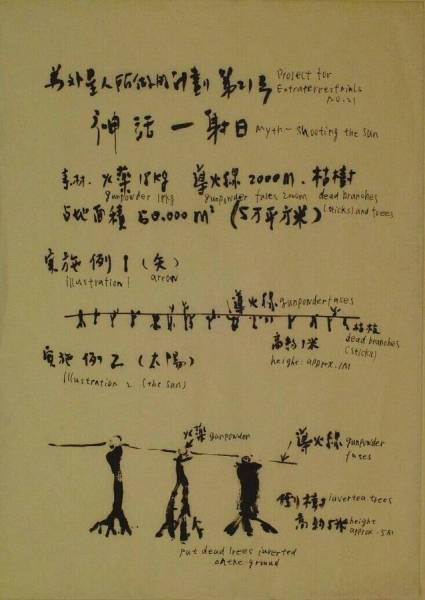 為外星人所做的計劃 第21号 Project for Extraterrestrials No.21
神話－射日 Myth - shooting the sun
素材. 火薬 18kg 導火線 2000m. 枯樹
gunpowder 18kg gunpowder fuses 2000m dead branches (sticks) and trees
占地面積 50.000 m² (5万平方米)
実施例1 (矢)
illustration 1 arrow
導火線 gunpowder fuses
枯枝
dead branches (sticks)
高約1米
height: approx. 1M
実施例2 (太陽)
illustration 2 (the sun)
火薬 gunpowder
導火線 gunpowder fuses
倒樹 inverted trees
高約5米 height approx. 5M
put dead trees inverted
on the ground